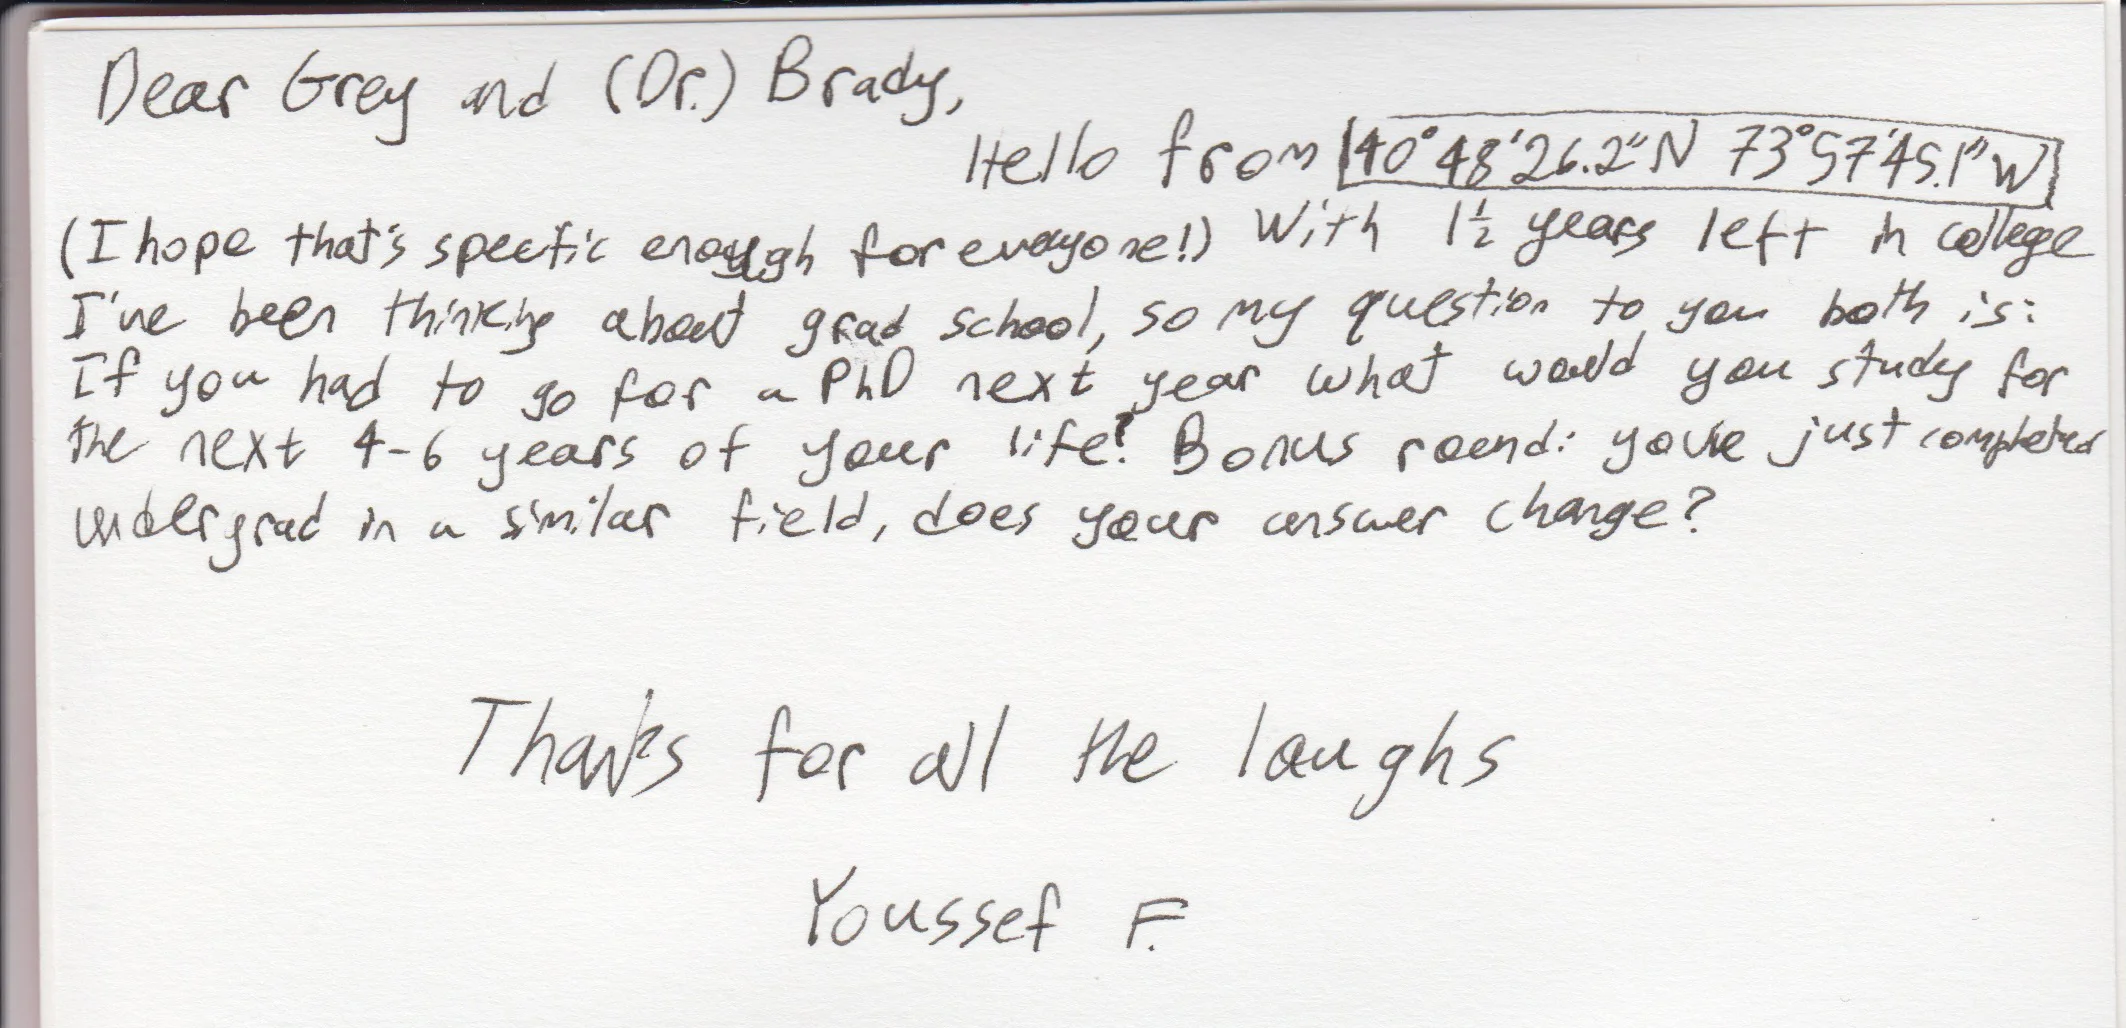 Dear Grey and (Dr.) Brady,
Hello from 40°48'26.2"N 73°57'45.1"W
(I hope that's specific enough for everyone!) With 1½ years left in college
I've been thinking about grad school, so my question to you both is:
If you had to go for a PhD next year what would you study for
the next 4-6 years of your life? Bonus round: you've just completed
undergrad in a similar field, does your answer change?
Thanks for all the laughs
Youssef F.